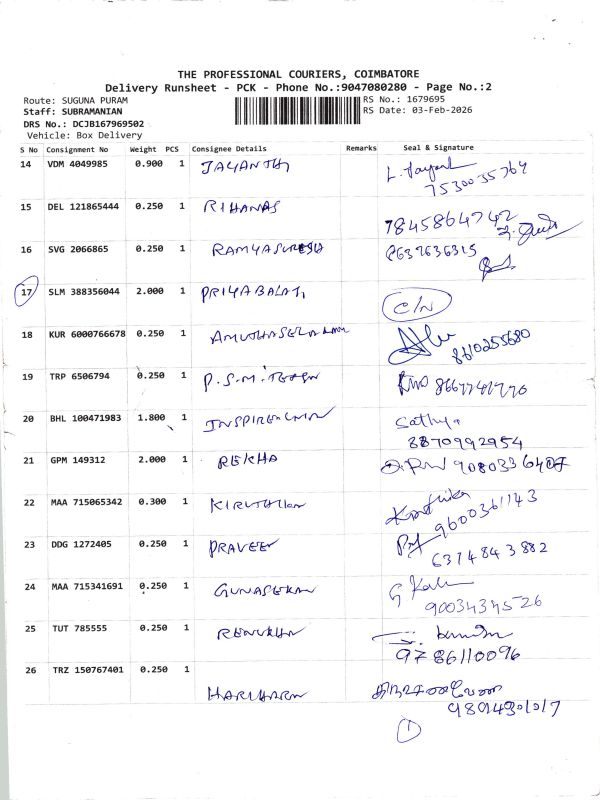 THE PROFESSIONAL COURIERS, COIMBATORE
Delivery Runsheet - PCK - Phone No.:9047080280 - Page No.:2
Route: SUGUNA PURAM
Staff: SUBRAMANIAN
DRS No.: DCJB167969502
Vehicle: Box Delivery
RS No.: 1679695
RS Date: 03-Feb-2026
S No Consignment No Weight PCS Consignee Details Remarks Seal & Signature
14 VDM 4049985 0.900 1 JAYANTHI L. Jayanthi
7530035764
15 DEL 121865444 0.250 1 RIHANAS
7845864742
16 SVG 2066865 0.250 1 RAMYASURESH 8637636315
17 SLM 388356044 2.000 1 PRIYABALAJI C/N
18 KUR 6000766678 0.250 1 AMUTHASELVAM
8610255680
19 TRP 6506794 0.250 1 P.S.M.
20 BHL 100471983 1.800 1 Sathya
8870992954
21 GPM 149312 2.000 1 REKHA 9080336407
22 MAA 715065342 0.300 1 Karthika
9600361143
23 DDG 1272405 0.250 1 PRAVEEN
6374843882
24 MAA 715341691 0.250 1 GUNASEKAN
9003434526
25 TUT 785555 0.250 1
9786110096
26 TRZ 150767401 0.250 1
HARIHARAN
1